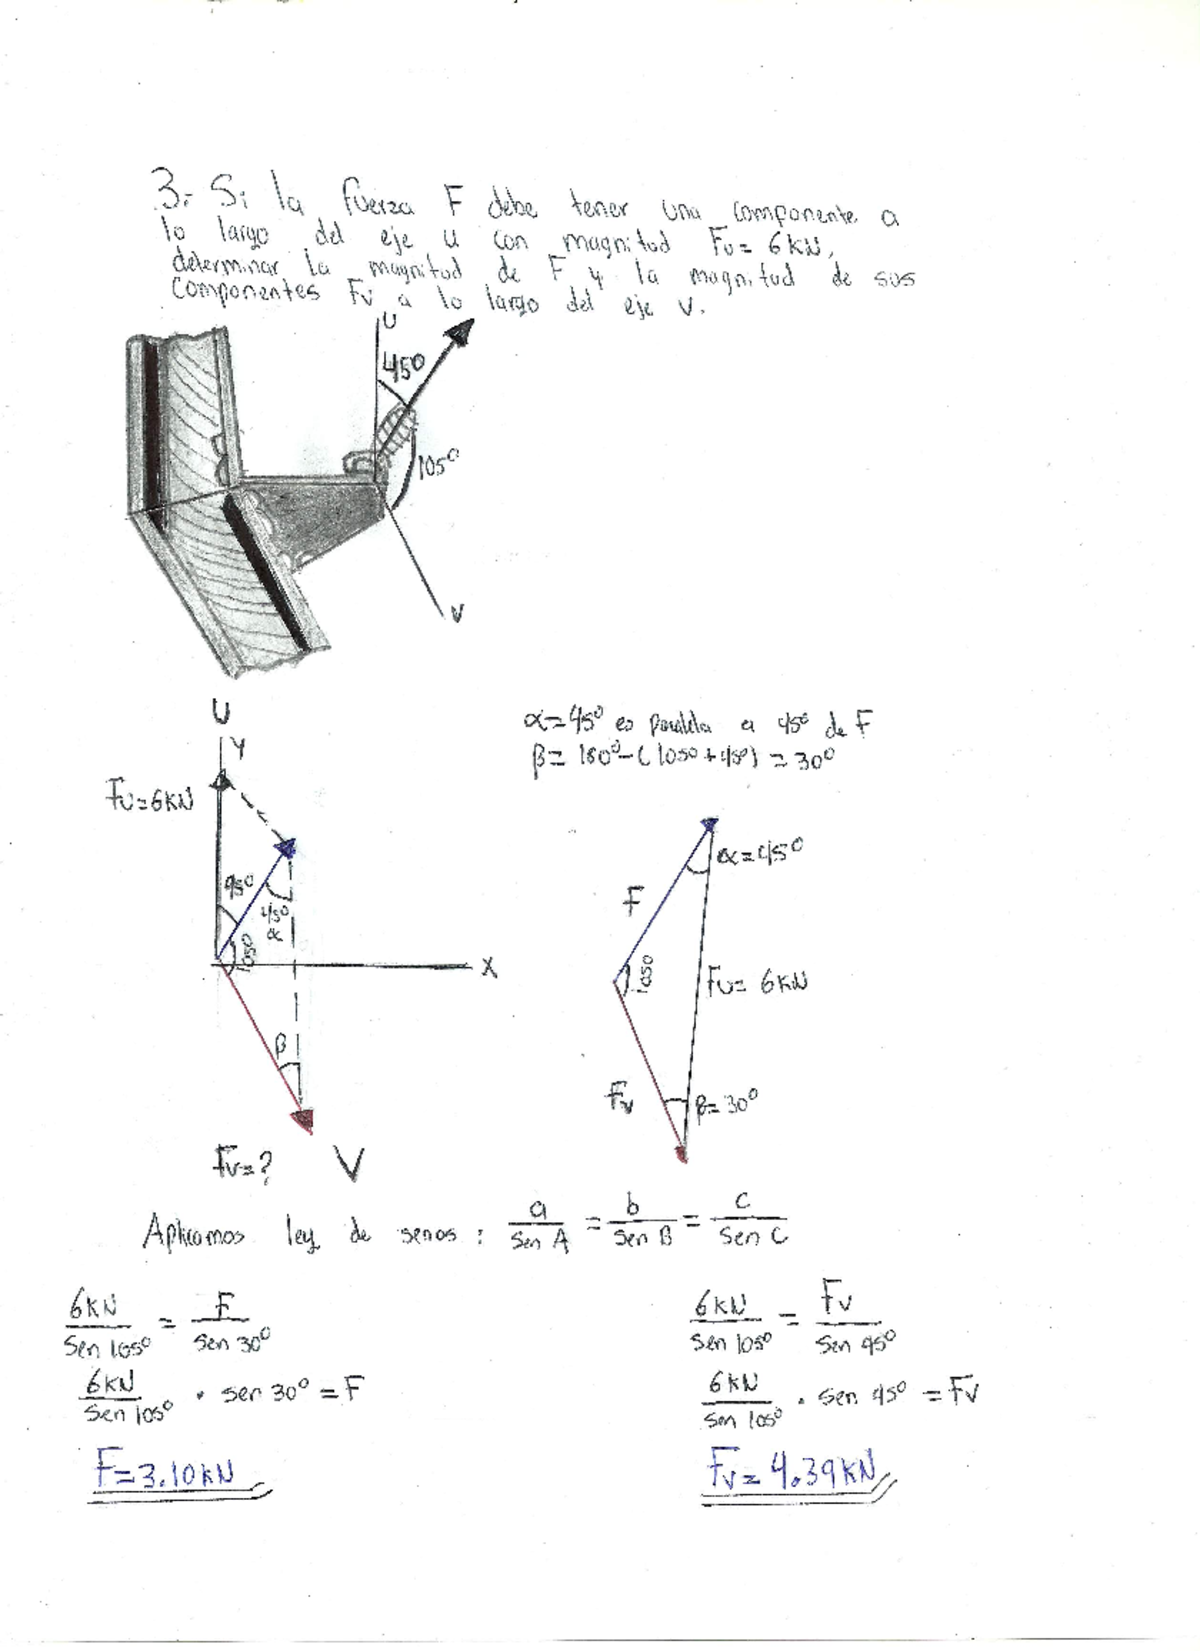 3.- Si la fuerza F debe tener una componente a
lo largo del eje u con magnitud Fu = 6 kN,
determinar la magnitud de F y la magnitud de sus
componentes Fv a lo largo del eje v.
U
45°
105°
V
U
Y
Fu=6KN
45°
45°
α
105°
X
β
Fv=?
V
α=45° es paralela a 45° de F
β= 180°-(105°+45°) = 30°
α=45°
F
105°
Fu= 6KN
Fv
β= 30°
Aplicamos ley de senos : a/Sen A = b/Sen B = c/Sen C
6KN/Sen 105° = F/Sen 30°
6KN/Sen 105° • sen 30° = F
F=3.10KN
6KN/Sen 105° = Fv/Sen 45°
6KN/Sen 105° • Sen 45° = Fv
Fv= 4.39KN